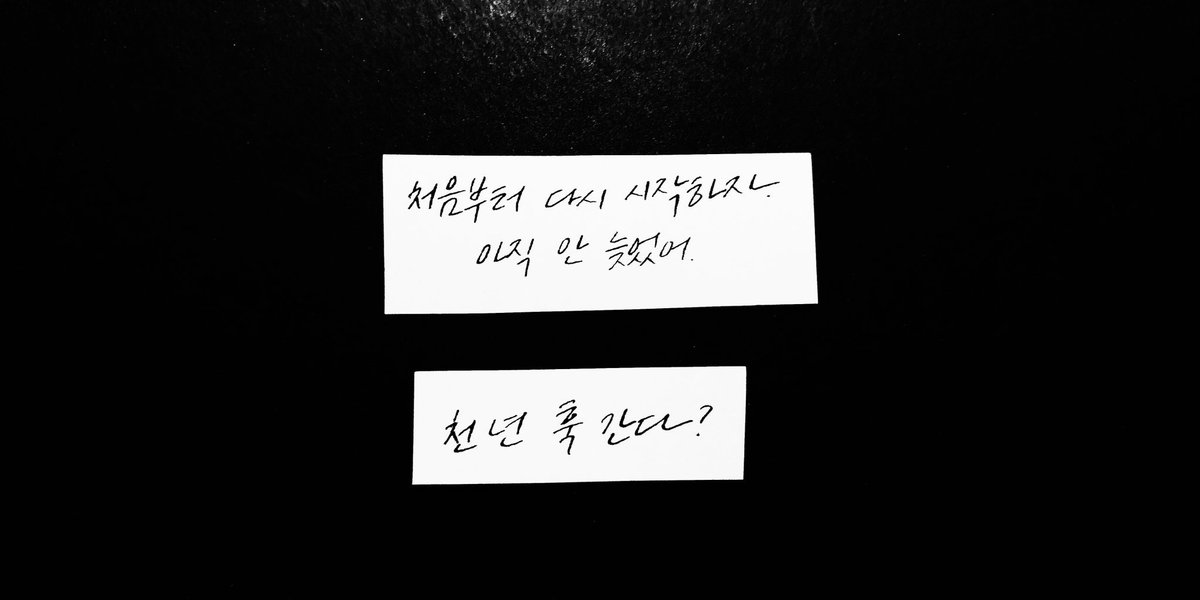 처음부터 다시 시작하자.
아직 안 늦었어.
천년 훅 간다?